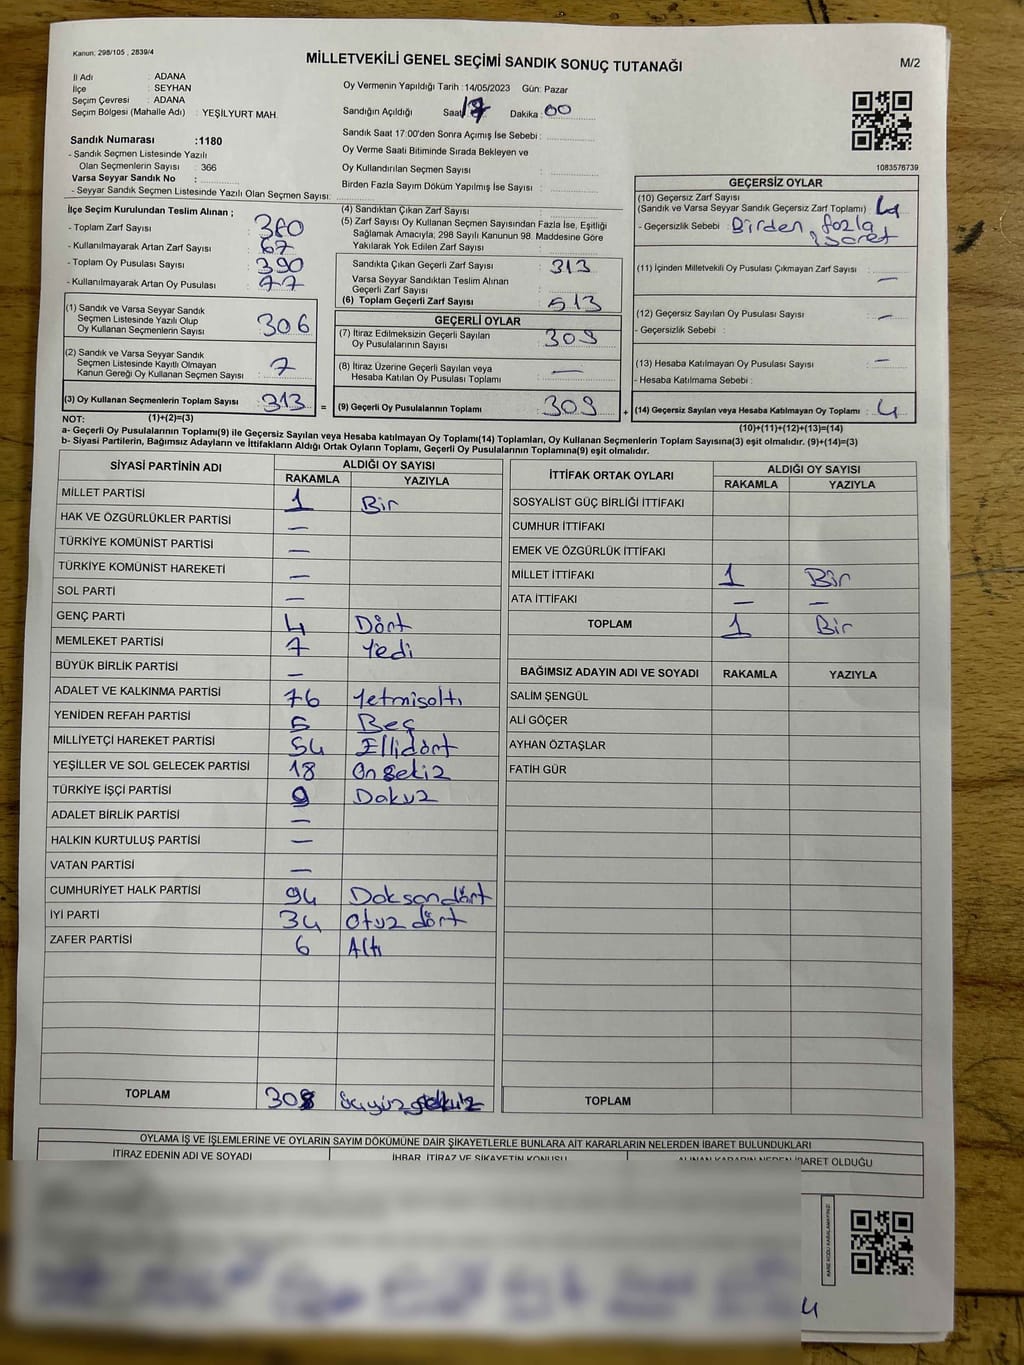 Kanun: 298/105 , 2839/4
MİLLETVEKİLİ GENEL SEÇİMİ SANDIK SONUÇ TUTANAĞI
M/2
İl Adı : ADANA
İlçe : SEYHAN
Seçim Çevresi : ADANA
Seçim Bölgesi (Mahalle Adı) : YEŞİLYURT MAH.
Sandık Numarası :1180
- Sandık Seçmen Listesinde Yazılı
Olan Seçmenlerin Sayısı : 366
Varsa Seyyar Sandık No :
- Seyyar Sandık Seçmen Listesinde Yazılı Olan Seçmen Sayısı:
Oy Vermenin Yapıldığı Tarih :14/05/2023 Gün: Pazar
Sandığın Açıldığı Saat 17 Dakika : 00
Sandık Saat 17:00'den Sonra Açımış İse Sebebi :
Oy Verme Saati Bitiminde Sırada Bekleyen ve
Oy Kullandırılan Seçmen Sayısı :
Birden Fazla Sayım Döküm Yapılmış İse Sayısı :
1083576739
İlçe Seçim Kurulundan Teslim Alınan ;
- Toplam Zarf Sayısı : 380
- Kullanılmayarak Artan Zarf Sayısı : 67
- Toplam Oy Pusulası Sayısı : 390
- Kullanılmayarak Artan Oy Pusulası : 77
(1) Sandık ve Varsa Seyyar Sandık
Seçmen Listesinde Yazılı Olup
Oy Kullanan Seçmenlerin Sayısı : 306
(2) Sandık ve Varsa Seyyar Sandık
Seçmen Listesinde Kayıtlı Olmayan
Kanun Gereği Oy Kullanan Seçmen Sayısı : 7
(3) Oy Kullanan Seçmenlerin Toplam Sayısı : 313 =
(1)+(2)=(3)
(4) Sandıktan Çıkan Zarf Sayısı :
(5) Zarf Sayısı Oy Kullanan Seçmen Sayısından Fazla İse, Eşitliği
Sağlamak Amacıyla, 298 Sayılı Kanunun 98. Maddesine Göre
Yakılarak Yok Edilen Zarf Sayısı :
Sandıkta Çıkan Geçerli Zarf Sayısı : 313
Varsa Seyyar Sandıktan Teslim Alınan
Geçerli Zarf Sayısı :
(6) Toplam Geçerli Zarf Sayısı : 513
GEÇERLİ OYLAR
(7) İtiraz Edilmeksizin Geçerli Sayılan
Oy Pusulalarının Sayısı : 309
(8) İtiraz Üzerine Geçerli Sayılan veya
Hesaba Katılan Oy Pusulası Toplamı : —
(9) Geçerli Oy Pusulalarının Toplamı : 309 +
GEÇERSİZ OYLAR
(10) Geçersiz Zarf Sayısı
(Sandık ve Varsa Seyyar Sandık Geçersiz Zarf Toplamı) : 4
- Geçersizlik Sebebi : Birden fazla
işaret
(11) İçinden Milletvekili Oy Pusulası Çıkmayan Zarf Sayısı : —
(12) Geçersiz Sayılan Oy Pusulası Sayısı : —
- Geçersizlik Sebebi :
(13) Hesaba Katılmayan Oy Pusulası Sayısı : —
- Hesaba Katılmama Sebebi :
(14) Geçersiz Sayılan veya Hesaba Katılmayan Oy Toplamı : 4
(10)+(11)+(12)+(13)=(14)
NOT:
a- Geçerli Oy Pusulalarının Toplamı(9) ile Geçersiz Sayılan veya Hesaba katılmayan Oy Toplamı(14) Toplamları, Oy Kullanan Seçmenlerin Toplam Sayısına(3) eşit olmalıdır. (9)+(14)=(3)
b- Siyasi Partilerin, Bağımsız Adayların ve İttifakların Aldığı Ortak Oyların Toplamı, Geçerli Oy Pusulalarının Toplamına(9) eşit olmalıdır.
SİYASİ PARTİNİN ADI ALDIĞI OY SAYISI
RAKAMLA YAZIYLA
MİLLET PARTİSİ 1 Bir
HAK VE ÖZGÜRLÜKLER PARTİSİ —
TÜRKİYE KOMÜNİST PARTİSİ —
TÜRKİYE KOMÜNİST HAREKETİ —
SOL PARTİ —
GENÇ PARTİ 4 Dört
MEMLEKET PARTİSİ 7 Yedi
BÜYÜK BİRLİK PARTİSİ —
ADALET VE KALKINMA PARTİSİ 76 Yetmişaltı
YENİDEN REFAH PARTİSİ 5 Beş
MİLLİYETÇİ HAREKET PARTİSİ 54 Ellidört
YEŞİLLER VE SOL GELECEK PARTİSİ 18 Onsekiz
TÜRKİYE İŞÇİ PARTİSİ 9 Dokuz
ADALET BİRLİK PARTİSİ —
HALKIN KURTULUŞ PARTİSİ —
VATAN PARTİSİ —
CUMHURİYET HALK PARTİSİ 94 Doksandört
İYİ PARTİ 34 Otuz dört
ZAFER PARTİSİ 6 Altı
TOPLAM 308
İTTİFAK ORTAK OYLARI ALDIĞI OY SAYISI
RAKAMLA YAZIYLA
SOSYALİST GÜÇ BİRLİĞİ İTTİFAKI
CUMHUR İTTİFAKI
EMEK VE ÖZGÜRLÜK İTTİFAKI
MİLLET İTTİFAKI 1 Bir
ATA İTTİFAKI — —
TOPLAM 1 Bir
BAĞIMSIZ ADAYIN ADI VE SOYADI RAKAMLA YAZIYLA
SALİM ŞENGÜL
ALİ GÖÇER
AYHAN ÖZTAŞLAR
FATİH GÜR
TOPLAM
OYLAMA İŞ VE İŞLEMLERİNE VE OYLARIN SAYIM DÖKÜMÜNE DAİR ŞİKAYETLERLE BUNLARA AİT KARARLARIN NELERDEN İBARET BULUNDUKLARI
İTİRAZ EDENİN ADI VE SOYADI İHBAR, İTİRAZ VE ŞİKAYETİN KONUSU ALINAN KARARIN NEDEN İBARET OLDUĞU
KARE KODU KARALAMAYINIZ!